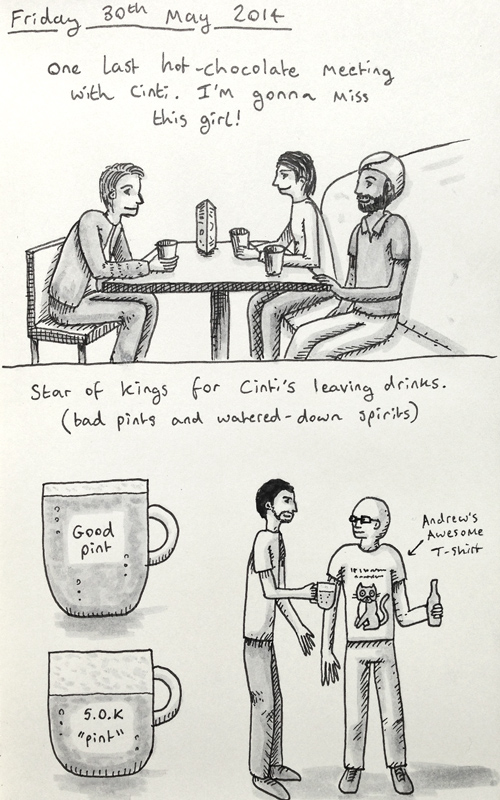 Friday 30th May 2014
One last hot-chocolate meeting
with Cinti. I'm gonna miss
this girl!
Star of Kings for Cinti's leaving drinks.
(bad pints and watered-down spirits)
Good
pint
S.O.K
"pint"
Andrew's
Awesome
T-shirt